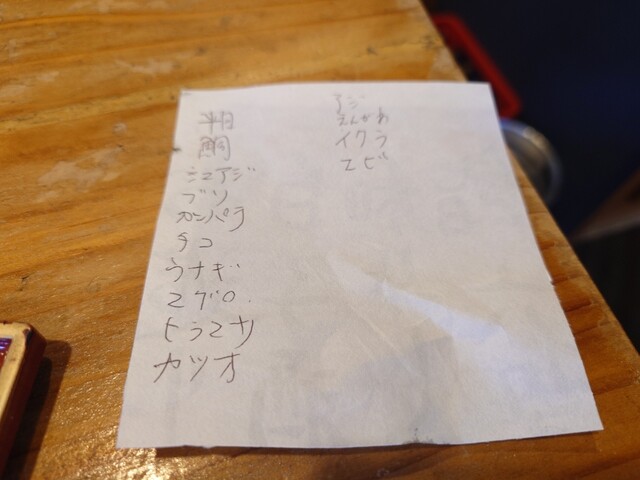 鯛
シマアジ
ブリ
カンパチ
タコ
ウナギ
マグロ.
ヒラマサ
カツオ
アジ
えんがわ
イクラ
エビ